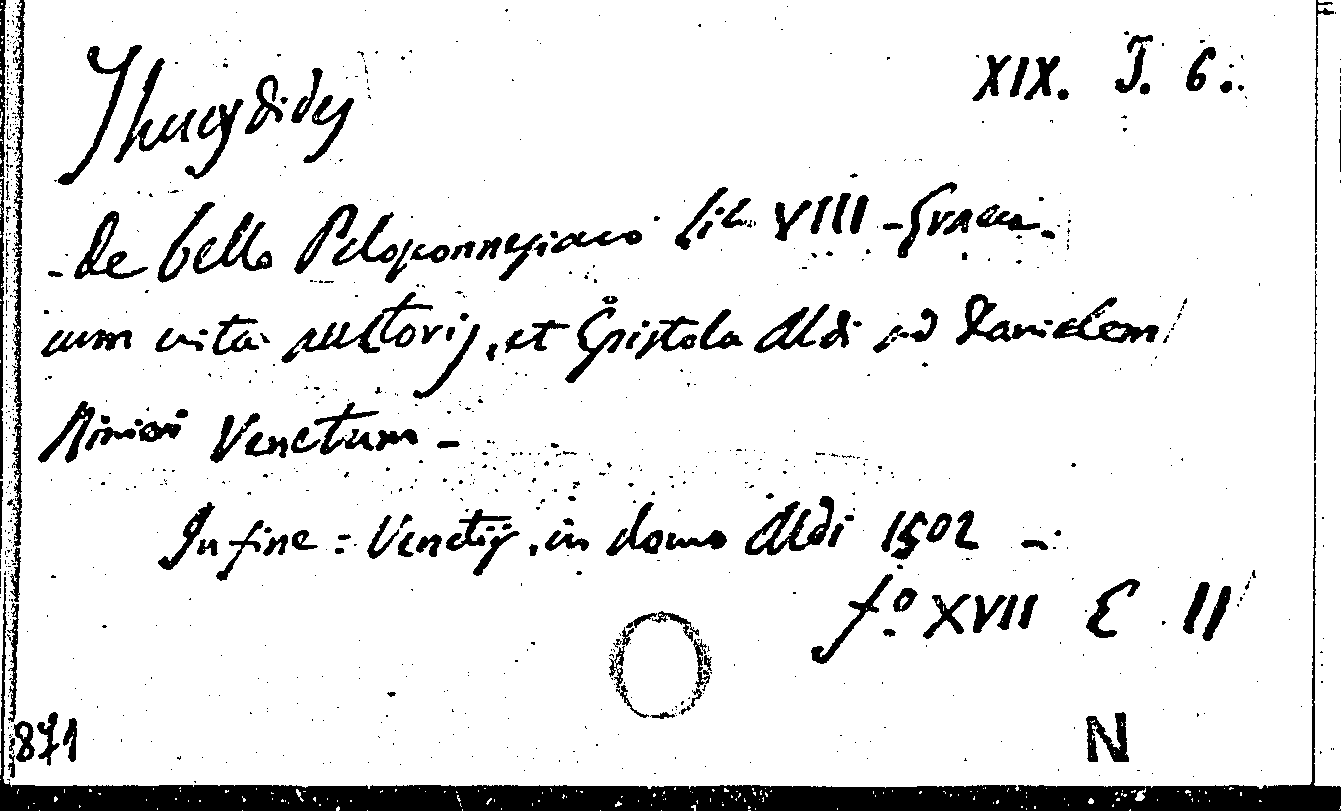 XIX. J. 6.
Thucydides
- De bello Peloponnesiaco lib VIII - Graece -
cum vita auctoris, et Epistola Aldi ad Danielem
Venetum -
In fine : Venetijs, in domo Aldi 1502 -
fº XVII E 11
871
N